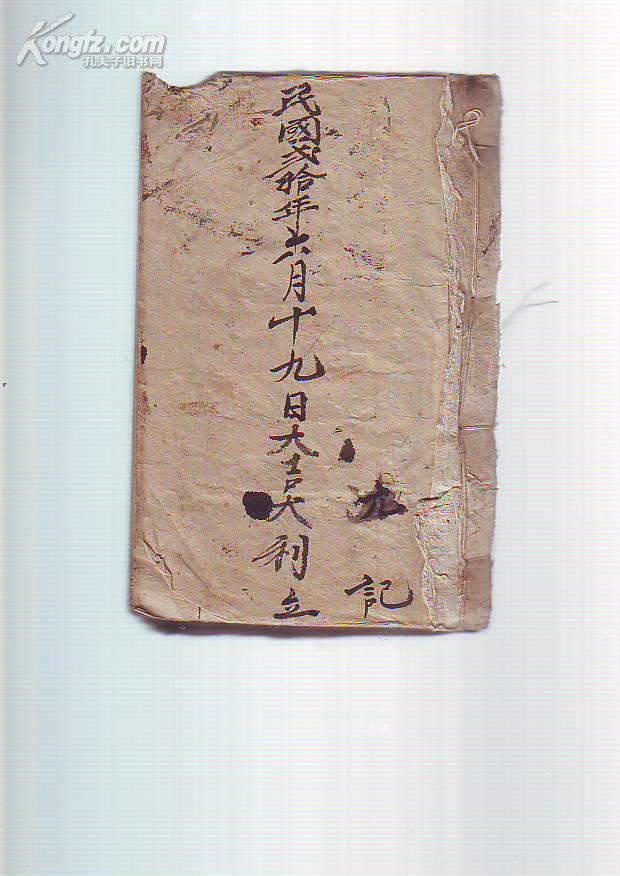 Kongfz.com
孔夫子旧书网
記
民國弍拾年六月十九日大吉大利立